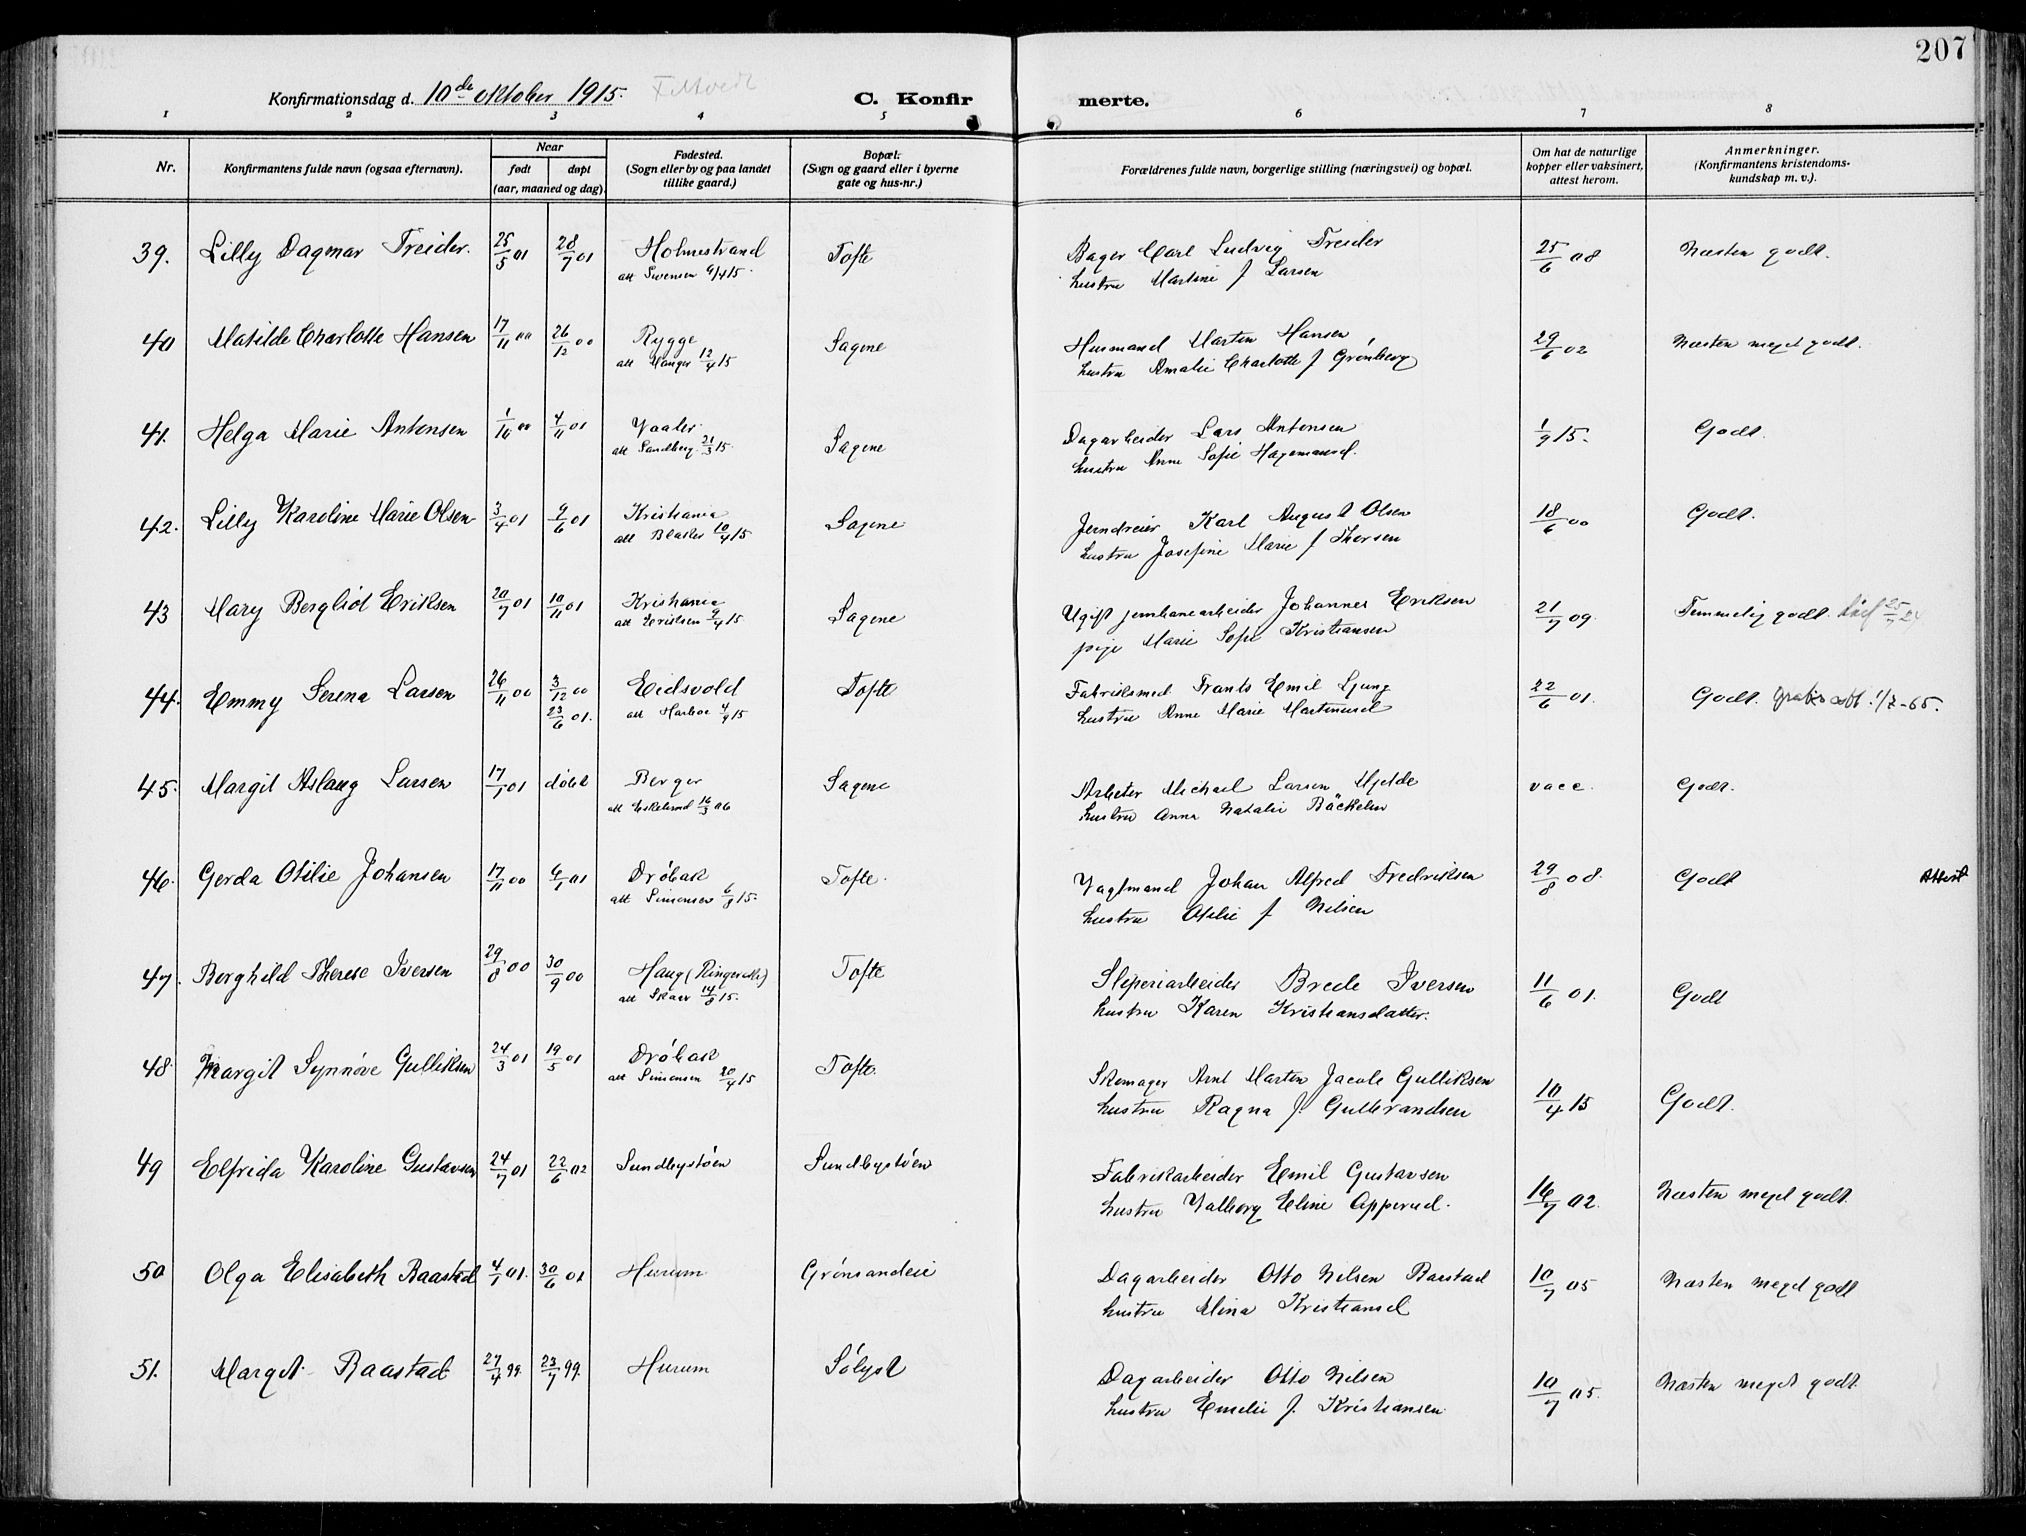 207
Konfirmationsdag d. 10de oktober 1915. Filtvedt
C. Konfirmerte.
1 2 3 4 5 6 7 8
Nr.
Konfirmantens fulde navn (ogsaa efternavn).
Naar
født døpt
(aar, maaned og dag).
Fødested.
(Sogn eller by og paa landet
tillike gaard.)
Bopæl.
(Sogn og gaard eller i byerne
gate og hus-nr.)
Forældrenes fulde navn, borgerlige stilling (næringsvei) og bopæl.
Om hat de naturlige
kopper eller vaksinert,
attest herom.
Anmerkninger.
(Konfirmantens kristendoms-
kundskap m. v.).
39. Lilly Dagmar Treider. 25/5 01 28/7 01 Holmestrand Tofte Bager Carl Ludvig Treider 25/6 08 Næsten godt.
att Svensen 9/4 15. hustru Martine f Larsen
40 Matilde Charlotte Hansen 17/11 00 26/12 00 Rygge Sagene Husmand Marten Hansen 29/6 02 Næsten meget godt.
att Manger 12/4 15 hustru Amalie Charlotte f Grønberg
41. Helga Marie Antonsen 1/10 00 4/11 01 Vaaler Sagene Dagarbeider Lars Antonsen 1/9 15. Godt.
att Sandberg 21/3 15. hustru Anne Sofie Hagemansd.
42. Lilly Karoline Marie Olsen 3/4 01 9/6 01 Kristiania Sagene Jerndreier Karl August Olsen 18/6 00 Godt.
att 10/4 15 hustru Josefine Marie f Thorsen
43 Mary Bergliot Eriksen 20/7 01 10/11 01 Kristiania Sagene Ugift jernbanearbeider Johannes Eriksen 21/7 09. Temmelig godt.
att Eriksen 9/4 15 pige Marie Sofie Kristiansen
44. Emmy Serena Larsen 26/11 00 3/12 00 Eidsvold Tofte Fabriksmed Frants Emil Ljung 22/6 01. Godt. Gratis att. 1/7-65.
23/6 01. att Harboe 4/9 15 hustru Anne Marie Martinusd
45. Margit Aslaug Larsen 17/1 01 døbt Berger Sagene Arbeter Michael Larsen Mjelde vacc. Godt.
att Eskelund 16/3 06 hustru Anna Natalie Bäckelin
46. Gerda Otilie Johansen 17/11 00 6/1 01 Drøbak Tofte. Vagtmand Johan Alfred Fredriksen 29/8 08. Godt Attest
att Simonsen 6/8 15. hustru Otilie f Nilsen
47. Borghild Therese Iversen 29/8 00 30/9 00 Haug (Ringerike) Tofte Sliperiarbeider Brede Iversen 11/6 01. Godt
att Skaar 14/8 15. hustru Karen Kristiansdatter.
48. Margit Synnøve Gulliksen 24/3 01 19/5 01 Drøbak Tofte. Skomager Arnt Marten Jacob Gulliksen 10/4 15 Godt.
att Simonsen 20/4 15 hustru Ragna f. Gulbrandsen
49 Elfrida Karoline Gustavsen 24/7 01 22/6 02 Sundbystøen Sundbystøen Fabrikarbeider Emil Gustavsen 16/7 02. Næsten meget godt.
hustru Valborg Eline Apperud.
50 Olga Elisabeth Raastad 4/1 01. 30/6 01 Hurum Grønsandeie Dagarbeider Otto Nilsen Raastad 10/7 05 Næsten meget godt
hustru Mina Kristiansd
51. Margit Raastad 27/4 99. 23/7 99. Hurum Sølyst Dagarbeider Otto Nilsen 10/7 05. Næsten meget godt.
hustru Emelie f. Kristiansen.